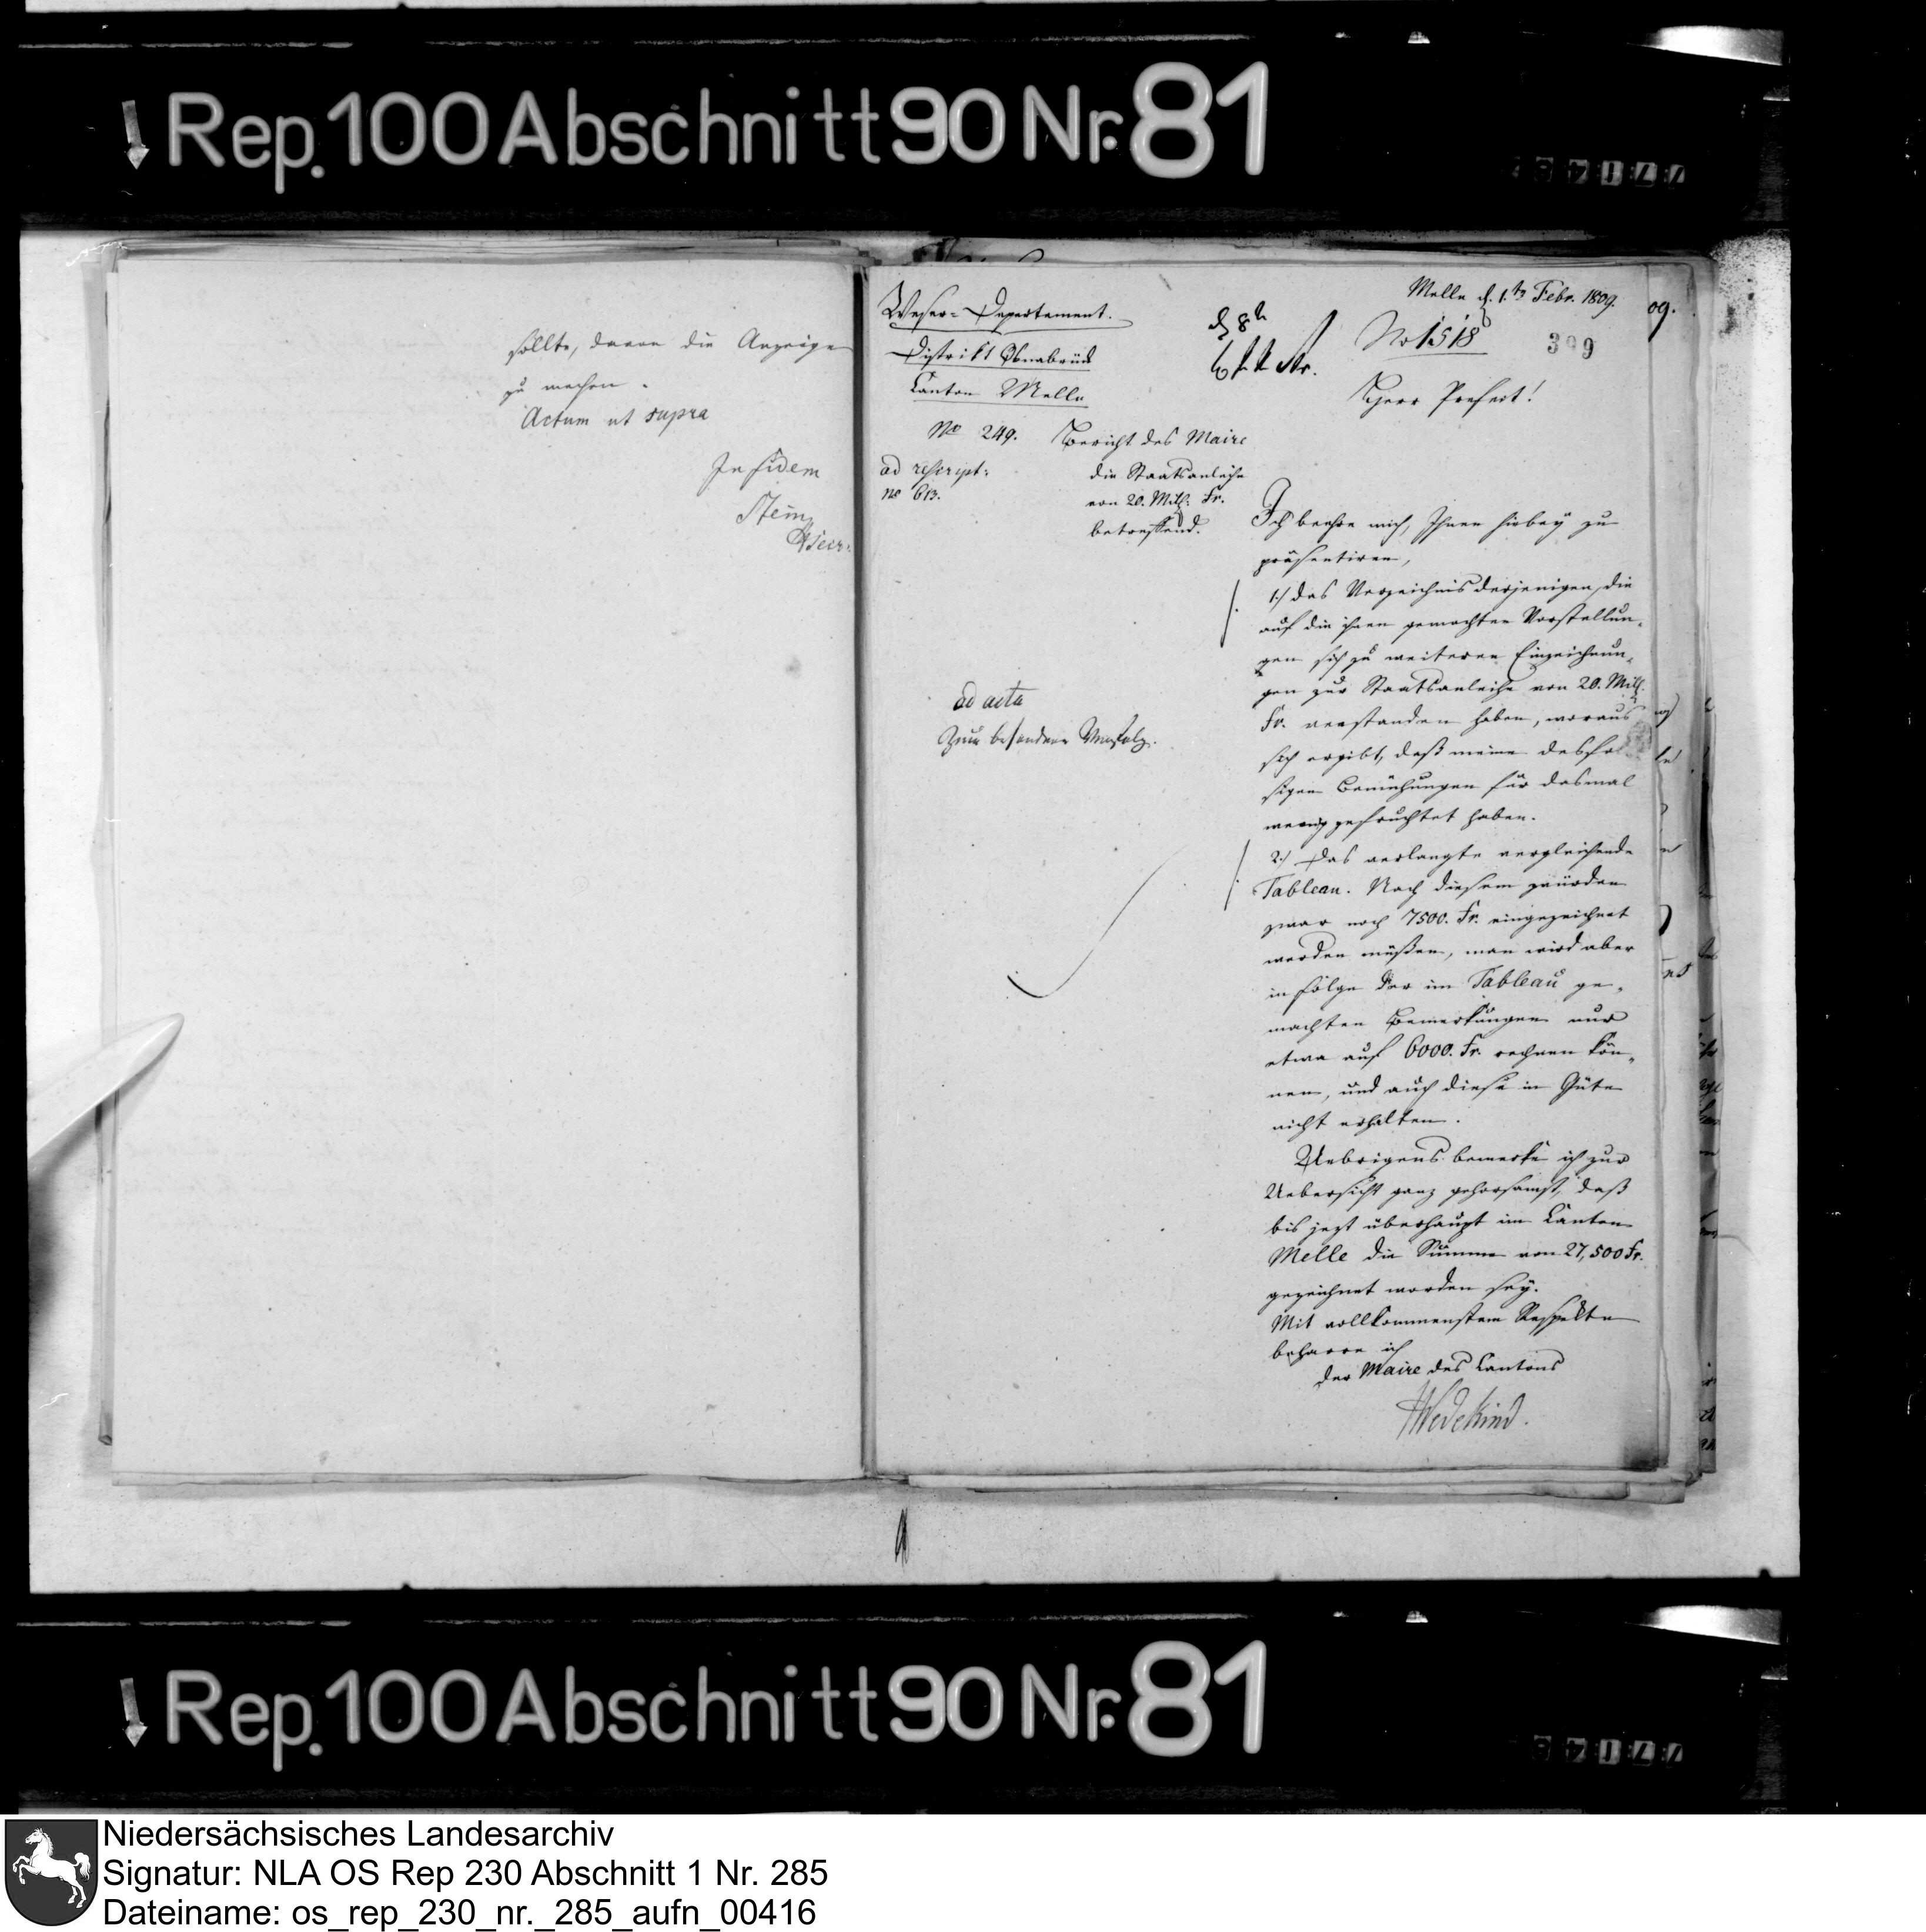 Rep. 100 Abschnitt 90 Nr. 81
sollte, davon die Anzeige
zu machen.
Actum ut supra
In fidem
Stein
Weser-Departement.
District Osnabrück
Canton Melle
No 249.
Bericht des Maire
die Staatsanleihe
von 20. Mill: Fr.
betreffend.
ad rescript:
no 613.
ad acta
Melle d. 1. Febr. 1809.
09.
No 1518
399
Herr Prefect!
Ich beehre mich, Ihnen hiebey zu
präsentiren,
1.) das Verzeichnis derjenigen, die
auf die ihnen gemachten Vorstellun-
gen sich zu weiteren Einzeichnun-
gen zur Staatsanleihe von 20. Mill.
Fr. verstanden haben, woraus
sich ergibt, daß meine desfal
sigen Bemühungen für dasmal
wenig gefruchtet haben.
2.) Das verlangte vergleichende
Tableau. Nach diesem würden
zwar noch 7500. Fr. eingezeichnet
werden müßen, man wird aber
in folge der im Tableau ge-
machten Bemerkungen nur
etwa auf 6000. Fr. rechnen kön-
nen, und auch diese in Güte
nicht erhalten.
Uebrigens bemerke ich zur
Uebersicht ganz gehorsamst, daß
bis jezt überhaupt im Canton
Melle die Summe von 27,500 Fr.
gezeichnet worden sey.
Mit vollkommenstem Respekte
beharre ich
der Maire des Cantons
Wedekind.
Rep. 100 Abschnitt 90 Nr. 81
Niedersächsisches Landesarchiv
Signatur: NLA OS Rep 230 Abschnitt 1 Nr. 285
Dateiname: os_rep_230_nr._285_aufn_00416